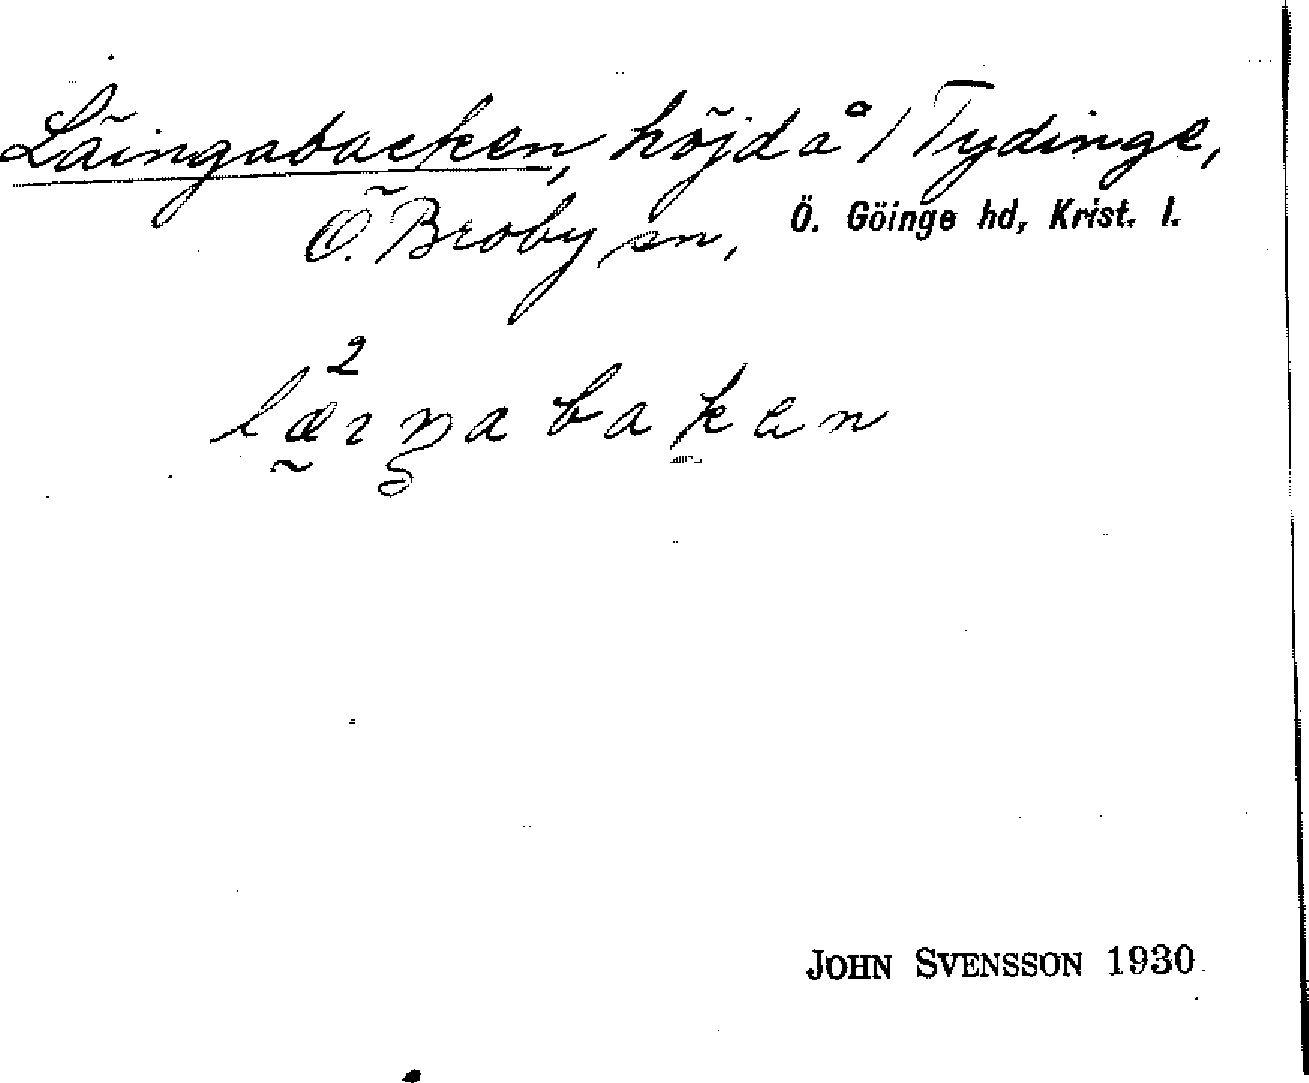 Läingabacken, höjd å 1 Tydinge,
Ö. Broby sn, Ö. Göinge hd, Krist. l.
2
lærŋabakan
JOHN SVENSSON 1930